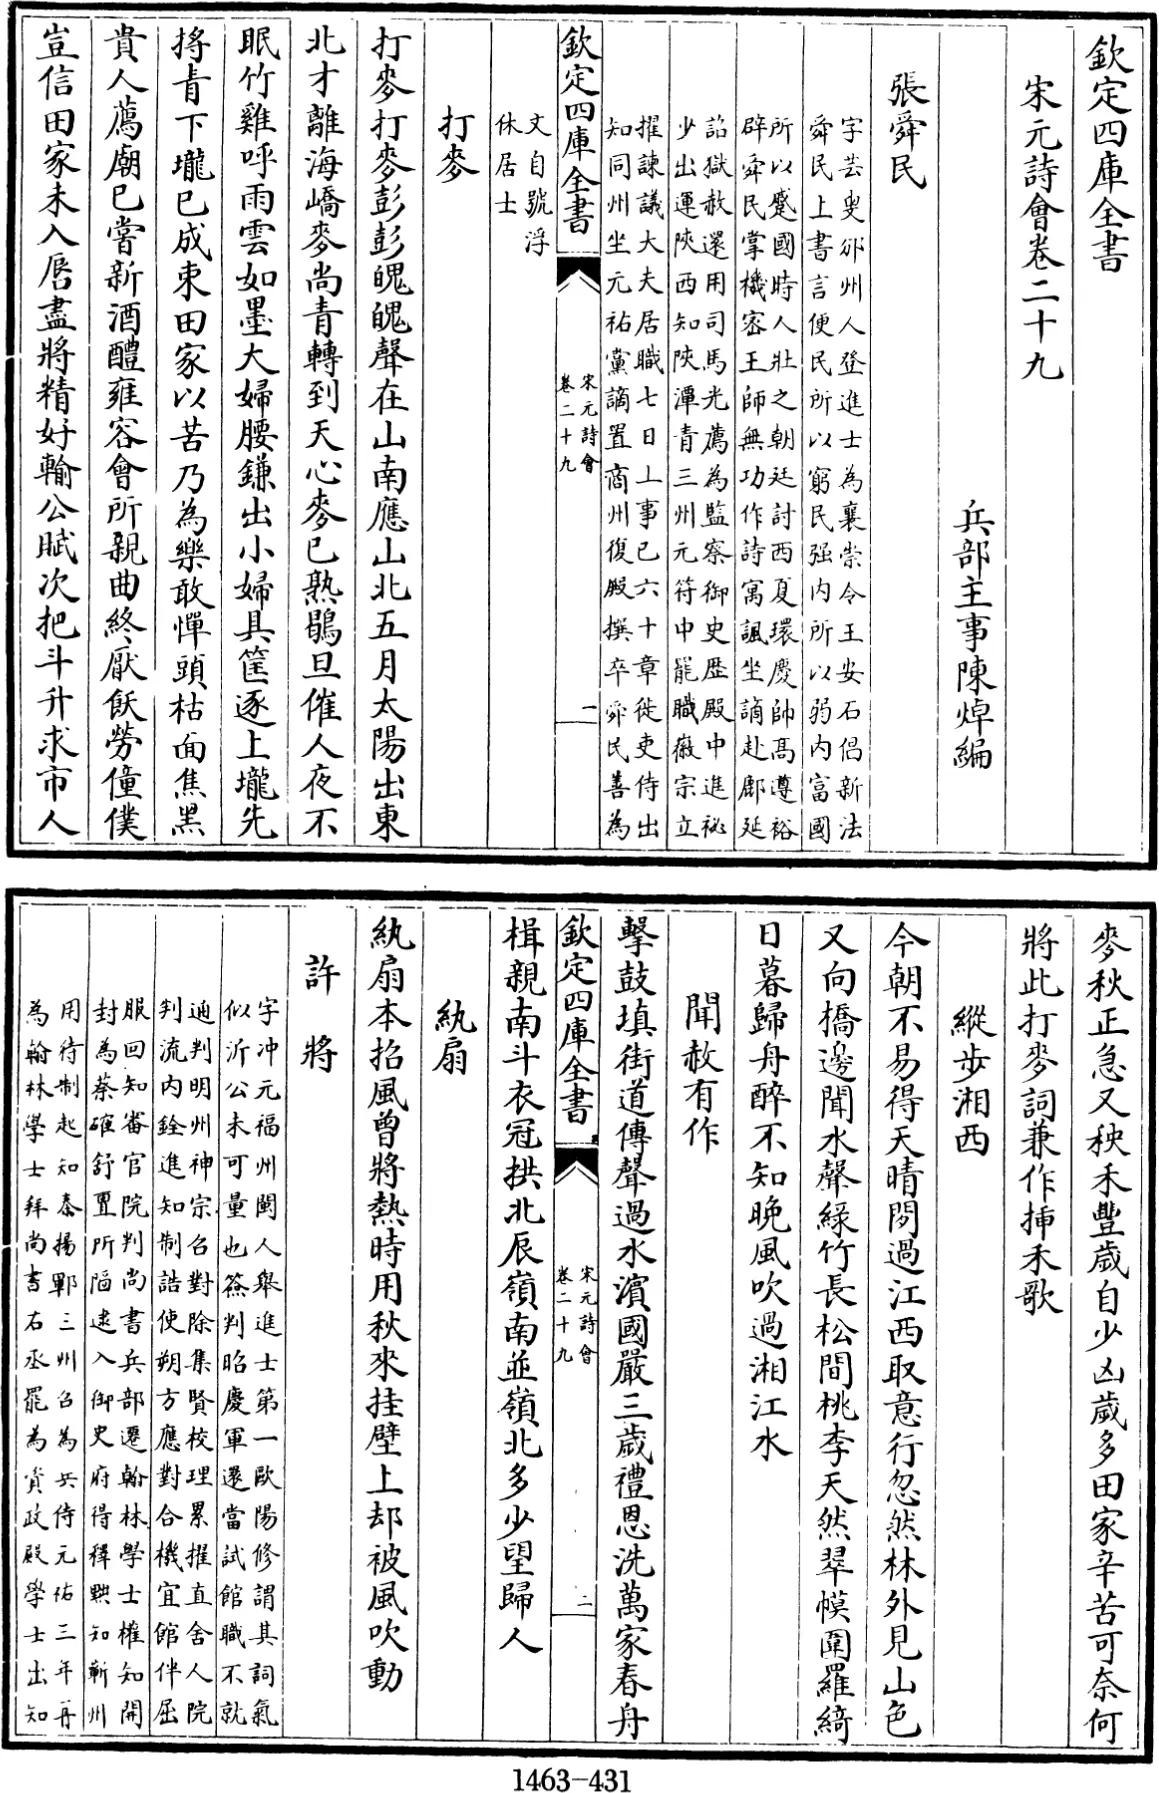 欽定四庫全書
宋元詩會卷二十九
兵部主事陳焯編
張舜民
字芸叟邠州人登進士為襄崇令王安石倡新法
舜民上書言便民所以窮民强内所以弱内富國
所以蹙國時人壯之朝廷討西夏環慶帥髙遵裕
辟舜民掌機宻王師無功作詩寓諷坐謫赴鄜延
詔獄赦還用司馬光薦為監察御史歴殿中進祕
少出運陜西知陜潭青三州元符中罷職徽宗立
擢諫議大夫居職七日上事已六十章徙吏侍出
知同州坐元祐黨謫置商州復殿撰卒舜民善為
欽定四庫全書
宋元詩會
卷二十九
一
文自號浮
休居士
打麥
打麥打麥彭彭魄魄聲在山南應山北五月太陽出東
北才離海嶠麥尚青轉到天心麥已熟鶡旦催人夜不
眠竹雞呼雨雲如墨大婦腰鎌出小婦具筐逐上壠先
捋青下壠已成束田家以苦乃為樂敢憚頭枯面焦黑
貴人薦廟已嘗新酒醴雍容會所親曲終厭飫勞僮僕
豈信田家未入唇盡將精好輸公賦次把斗升求市人
麥秋正急又秧禾豐歲自少凶歲多田家辛苦可奈何
將此打麥詞兼作揷禾歌
縱步湘西
今朝不易得天晴閑過江西取意行忽然林外見山色
又向橋邊聞水聲緑竹長松間桃李天然翠幙圍羅綺
日暮歸舟醉不知晚風吹過湘江水
聞赦有作
擊鼓填街道傳聲過水濱國嚴三歲禮恩洗萬家春舟
欽定四庫全書
宋元詩會
卷二十九
二
楫親南斗衣冠拱北辰嶺南並嶺北多少望歸人
紈扇
紈扇本招風曾將熱時用秋來挂壁上却被風吹動
許將
字冲元福州閩人舉進士第一歐陽修謂其詞氣
似沂公未可量也簽判昭慶軍還當試館職不就
通判明州神宗召對除集賢校理累擢直舍人院
判流内銓進知制誥使朔方應對合機宜館伴屈
服回知審官院判尚書兵部遷翰林學士權知開
封為蔡確舒亶所陷逮入御史府得釋黜知蘄州
用待制起知秦揚鄆三州召為兵侍元祐三年再
為翰林學士拜尚書右丞罷為資政殿學士出知
1463-431